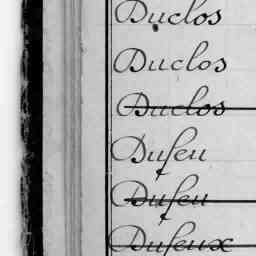 Duclos
Duclos
Duclos
Dufeu
Dufeu
Dufeux